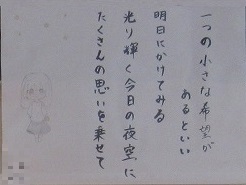 一つの小さな希望が
あるといい
明日にかけてみる
光り輝く今日の夜空に
たくさんの思いを乗せて